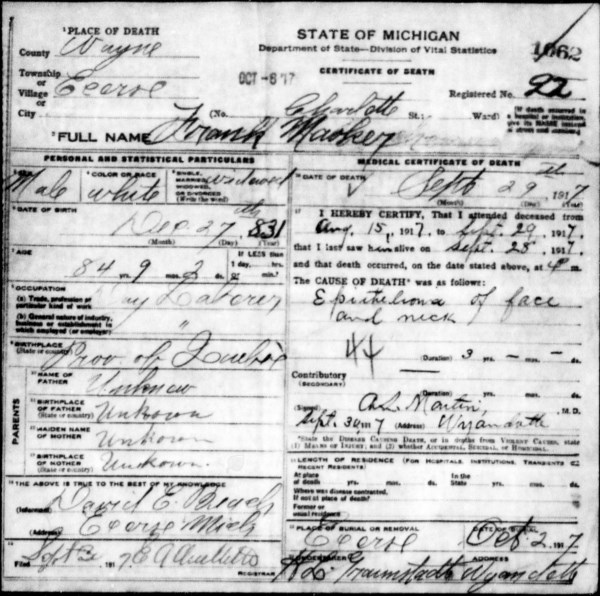 PLACE OF DEATH
County Wayne
Township
or
Village Ecorse
or
City
STATE OF MICHIGAN
Department of State—Division of Vital Statistics
CERTIFICATE OF DEATH
OCT -6 '17
1062
Registered No. 22
(No. Charlotte St.; Ward)
(If death occurred in a hospital or institution, give its NAME instead of street and number.)
FULL NAME Frank
PERSONAL AND STATISTICAL PARTICULARS
SEX Male
COLOR OR RACE white
SINGLE, MARRIED, WIDOWED, OR DIVORCED (Write the word) widowed
DATE OF BIRTH
Dec 27th 831
(Month) (Day) (Year)
AGE
84 yrs. 9 mos. 2 ds.
IF LESS than
1 day, hrs.
or min.?
OCCUPATION
(a) Trade, profession or particular kind of work Day Laborer
(b) General nature of industry, business or establishment in which employed (or employer) "
BIRTHPLACE
(State or country) Prov. of Quebec
PARENTS
NAME OF FATHER Unknow
BIRTHPLACE OF FATHER (State or country) Unknown
MAIDEN NAME OF MOTHER Unknown
BIRTHPLACE OF MOTHER (State or country) Unknown.
THE ABOVE IS TRUE TO THE BEST OF MY KNOWLEDGE
(Informant) David C. Beach
(Address) Ecorse Mich
Filed Sept 191 7 E A
REGISTRAR
MEDICAL CERTIFICATE OF DEATH
DATE OF DEATH
Sept 29th, 1917
(Month) (Day) (Year)
I HEREBY CERTIFY, That I attended deceased from
Aug. 15, 1917, to Sept. 29, 1917,
that I last saw him alive on Sept. 28, 1917,
and that death occurred, on the date stated above, at 4 m.
The CAUSE OF DEATH* was as follows:
Epithelioma of face
and neck
44
(Duration) 3 yrs. – mos. – ds.
Contributory
(SECONDARY)
(Duration) yrs. mos. ds.
(Signed) Martin, M.D.
Sept. 30, 1917 (Address) Wyandotte
*State the DISEASE CAUSING DEATH, or in deaths from VIOLENT CAUSES, state (1) MEANS OF INJURY; and (2) whether ACCIDENTAL, SUICIDAL, or HOMICIDAL.
LENGTH OF RESIDENCE (FOR HOSPITALS, INSTITUTIONS, TRANSIENTS OR RECENT RESIDENTS)
At place of death yrs. mos. ds. In the State yrs. mos. ds.
Where was disease contracted,
if not at place of death?
Former or
usual residence
PLACE OF BURIAL OR REMOVAL Ecorse
DATE OF BURIAL Oct. 2, 1917
UNDERTAKER
ADDRESS Wyandotte